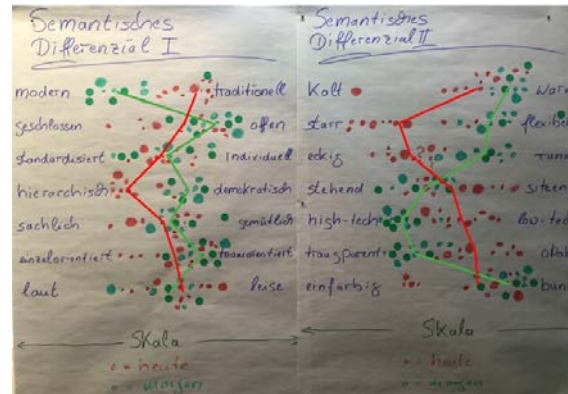 Semantisches
Differenzial I
modern traditionell
geschlossen offen
standardisiert Individuell
hierarchisch demokratisch
sachlich gemütlich
einzelorientiert teamorientiert
laut leise
Skala
= heute
= morgen
Semantisches
Differenzial II
Kalt warm
starr flexibel
eckig
stehend
high-tech low-tech
transparent
einfarbig bunt
Skala
= heute
= morgen